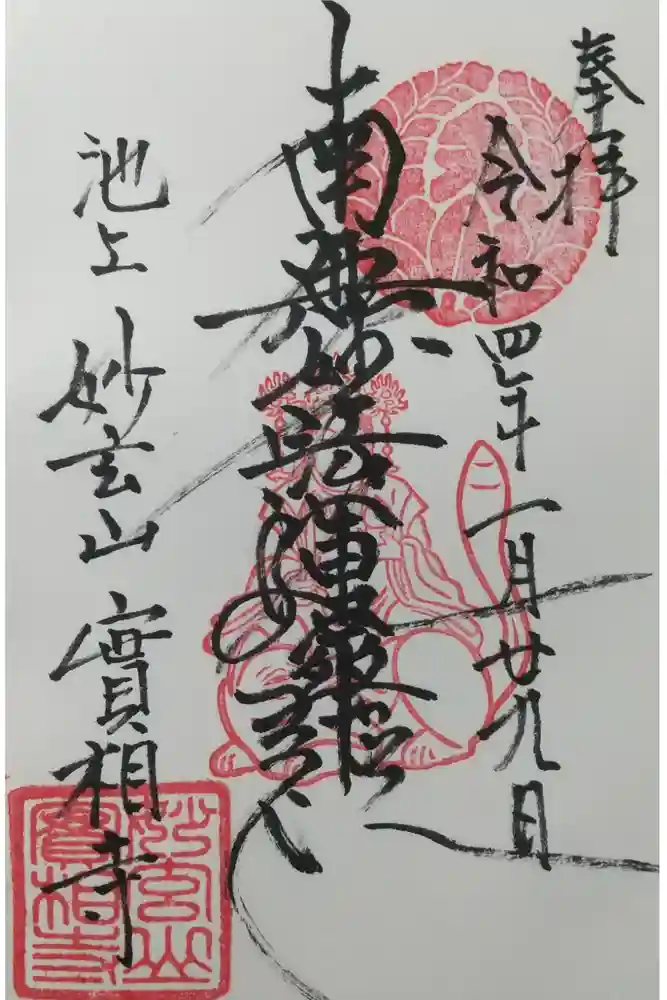 奉拝
令和四年一月廿九日
南無妙法蓮華経
池上 妙玄山 實相寺
妙玄山
實相寺